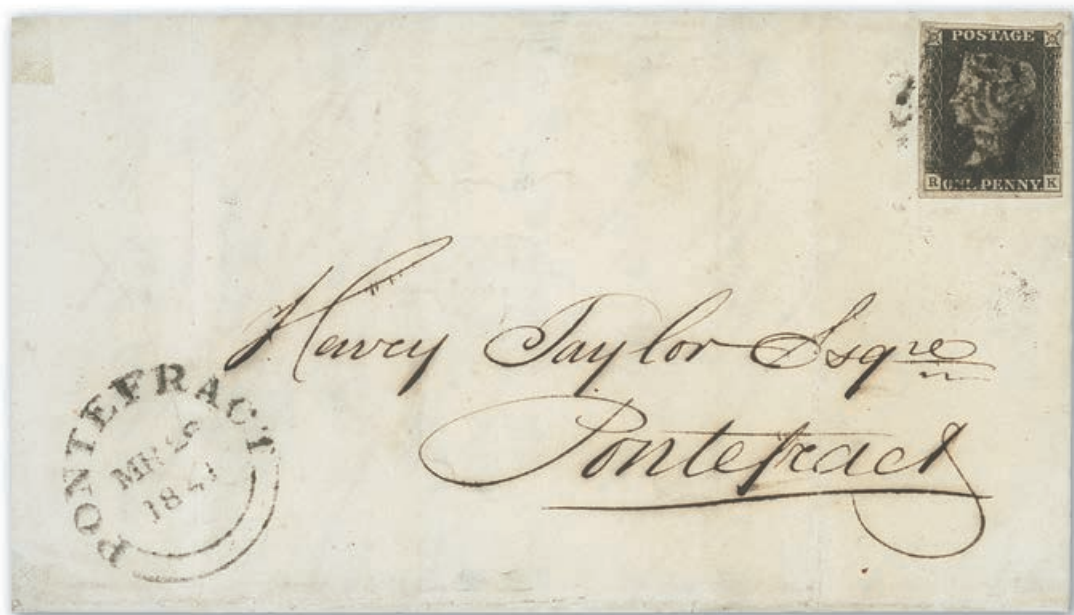 POSTAGE
R ONE PENNY K
Harvey Taylor Esqre
Pontefract
PONTEFRACT
MR